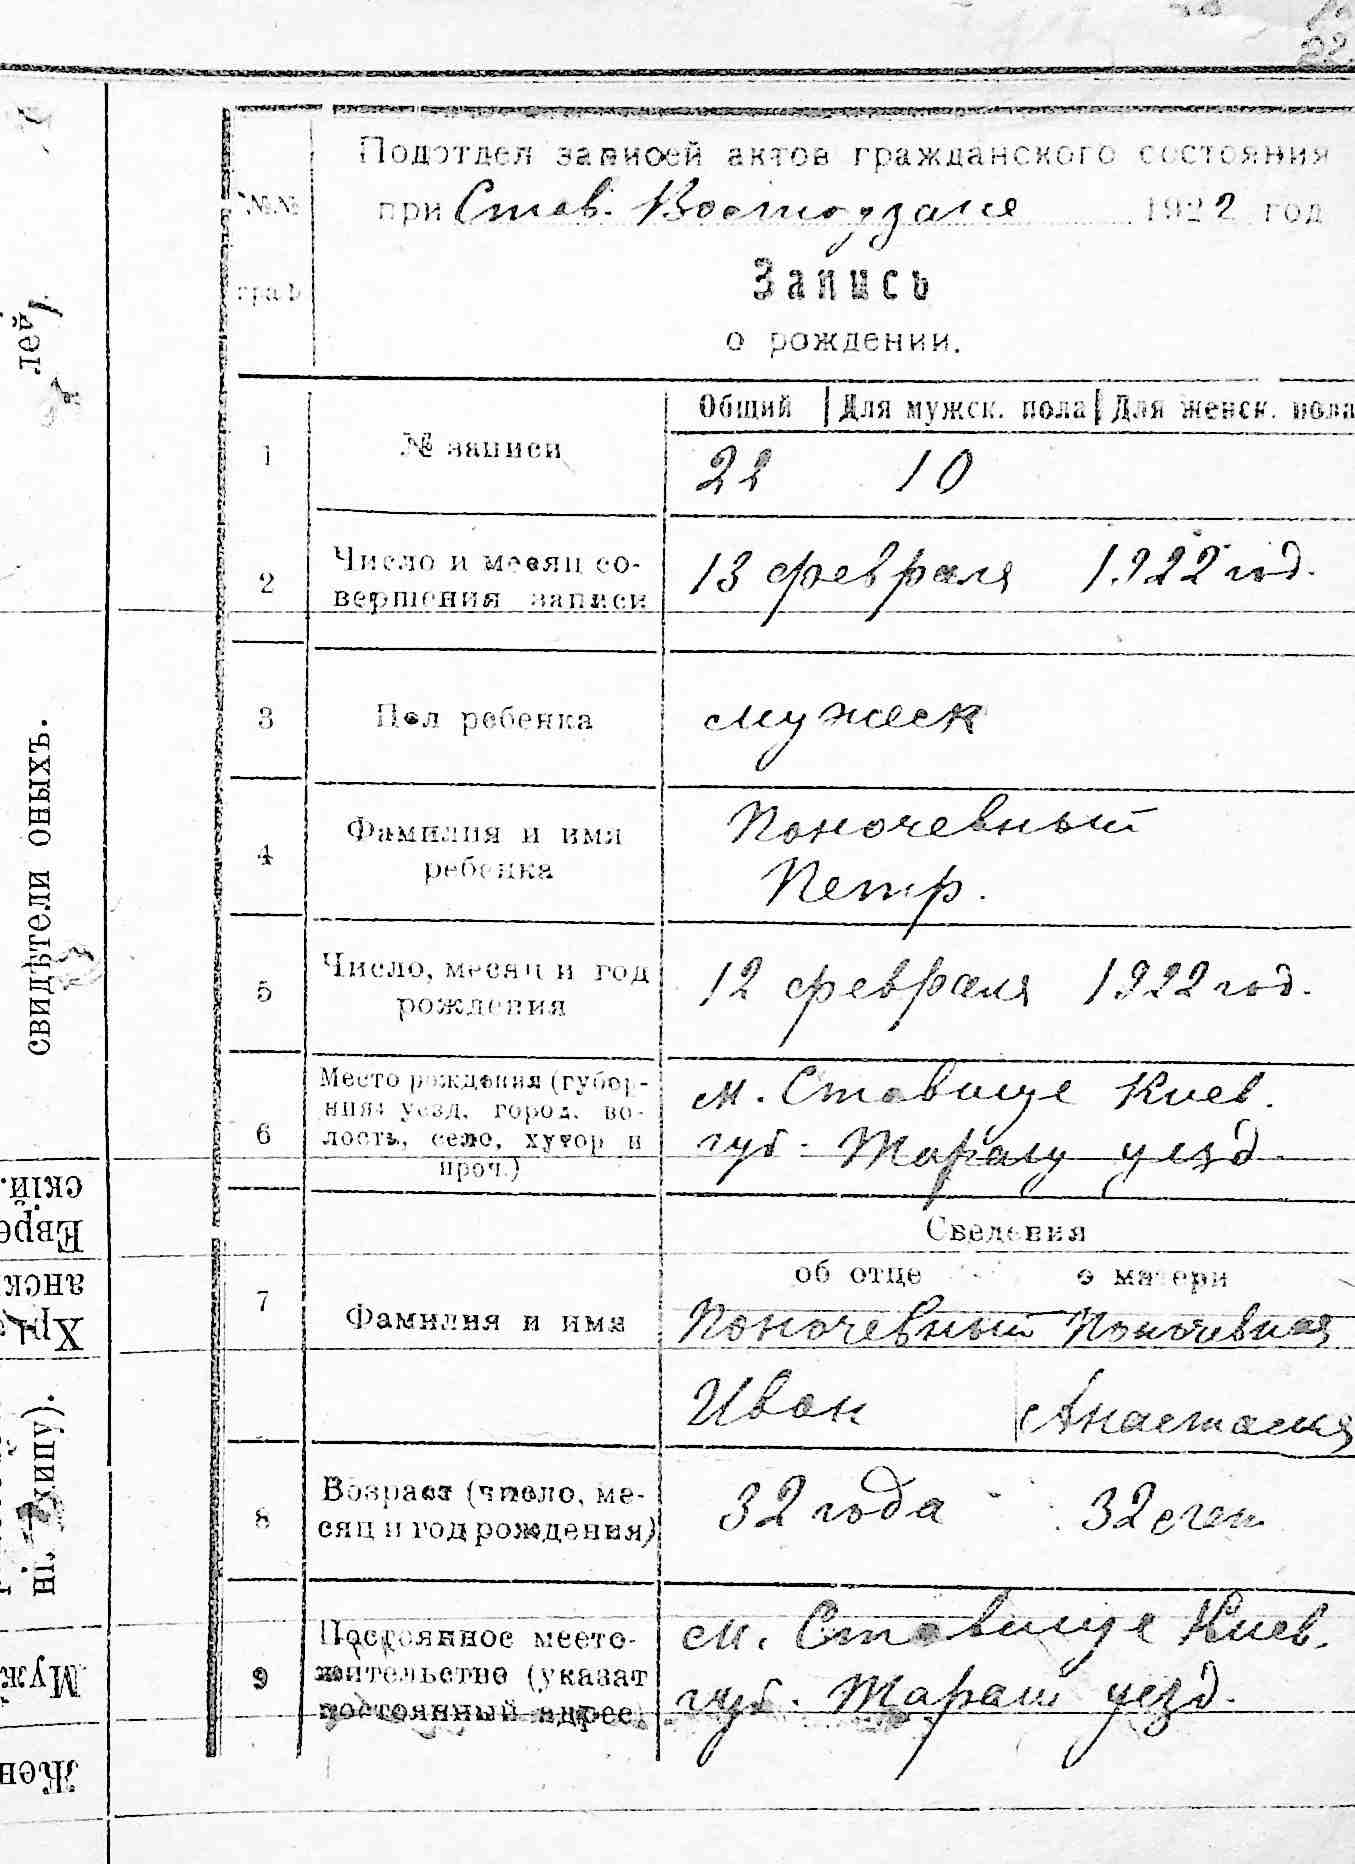 Подотдел записей актов гражданского состояния
№№ при Став. 1922 год
граф
Запись
о рождении.
Общий Для мужск. пола Для женск. пола
1 № записи 22 10
2 Число и месяц со-
вершения записи 13 февраля 1922 год.
3 Пол ребенка мужеск
4 Фамилия и имя
ребенка Поночевный
Петр.
5 Число, месяц и год
рождения 12 февраля 1922 год.
6 Место рождения (губер-
ния, уезд, город, во-
лость, село, хутор и
проч.) м. Ставище Киев.
губ. Таращ уезд
Сведения
об отце о матери
7 Фамилия и имя Поночевный Поночевная
Иван Анастасия
8 Возраст (число, ме-
сяц и год рождения) 32 года 32
9 Постоянное место-
жительство (указат
постоянный адрес) м. Ставище Киев.
губ. Таращ уезд.
лей)
свидѣтели оныхъ.
скій.
Евре
анск
Хри
ні, хипу).
Муж
Жен